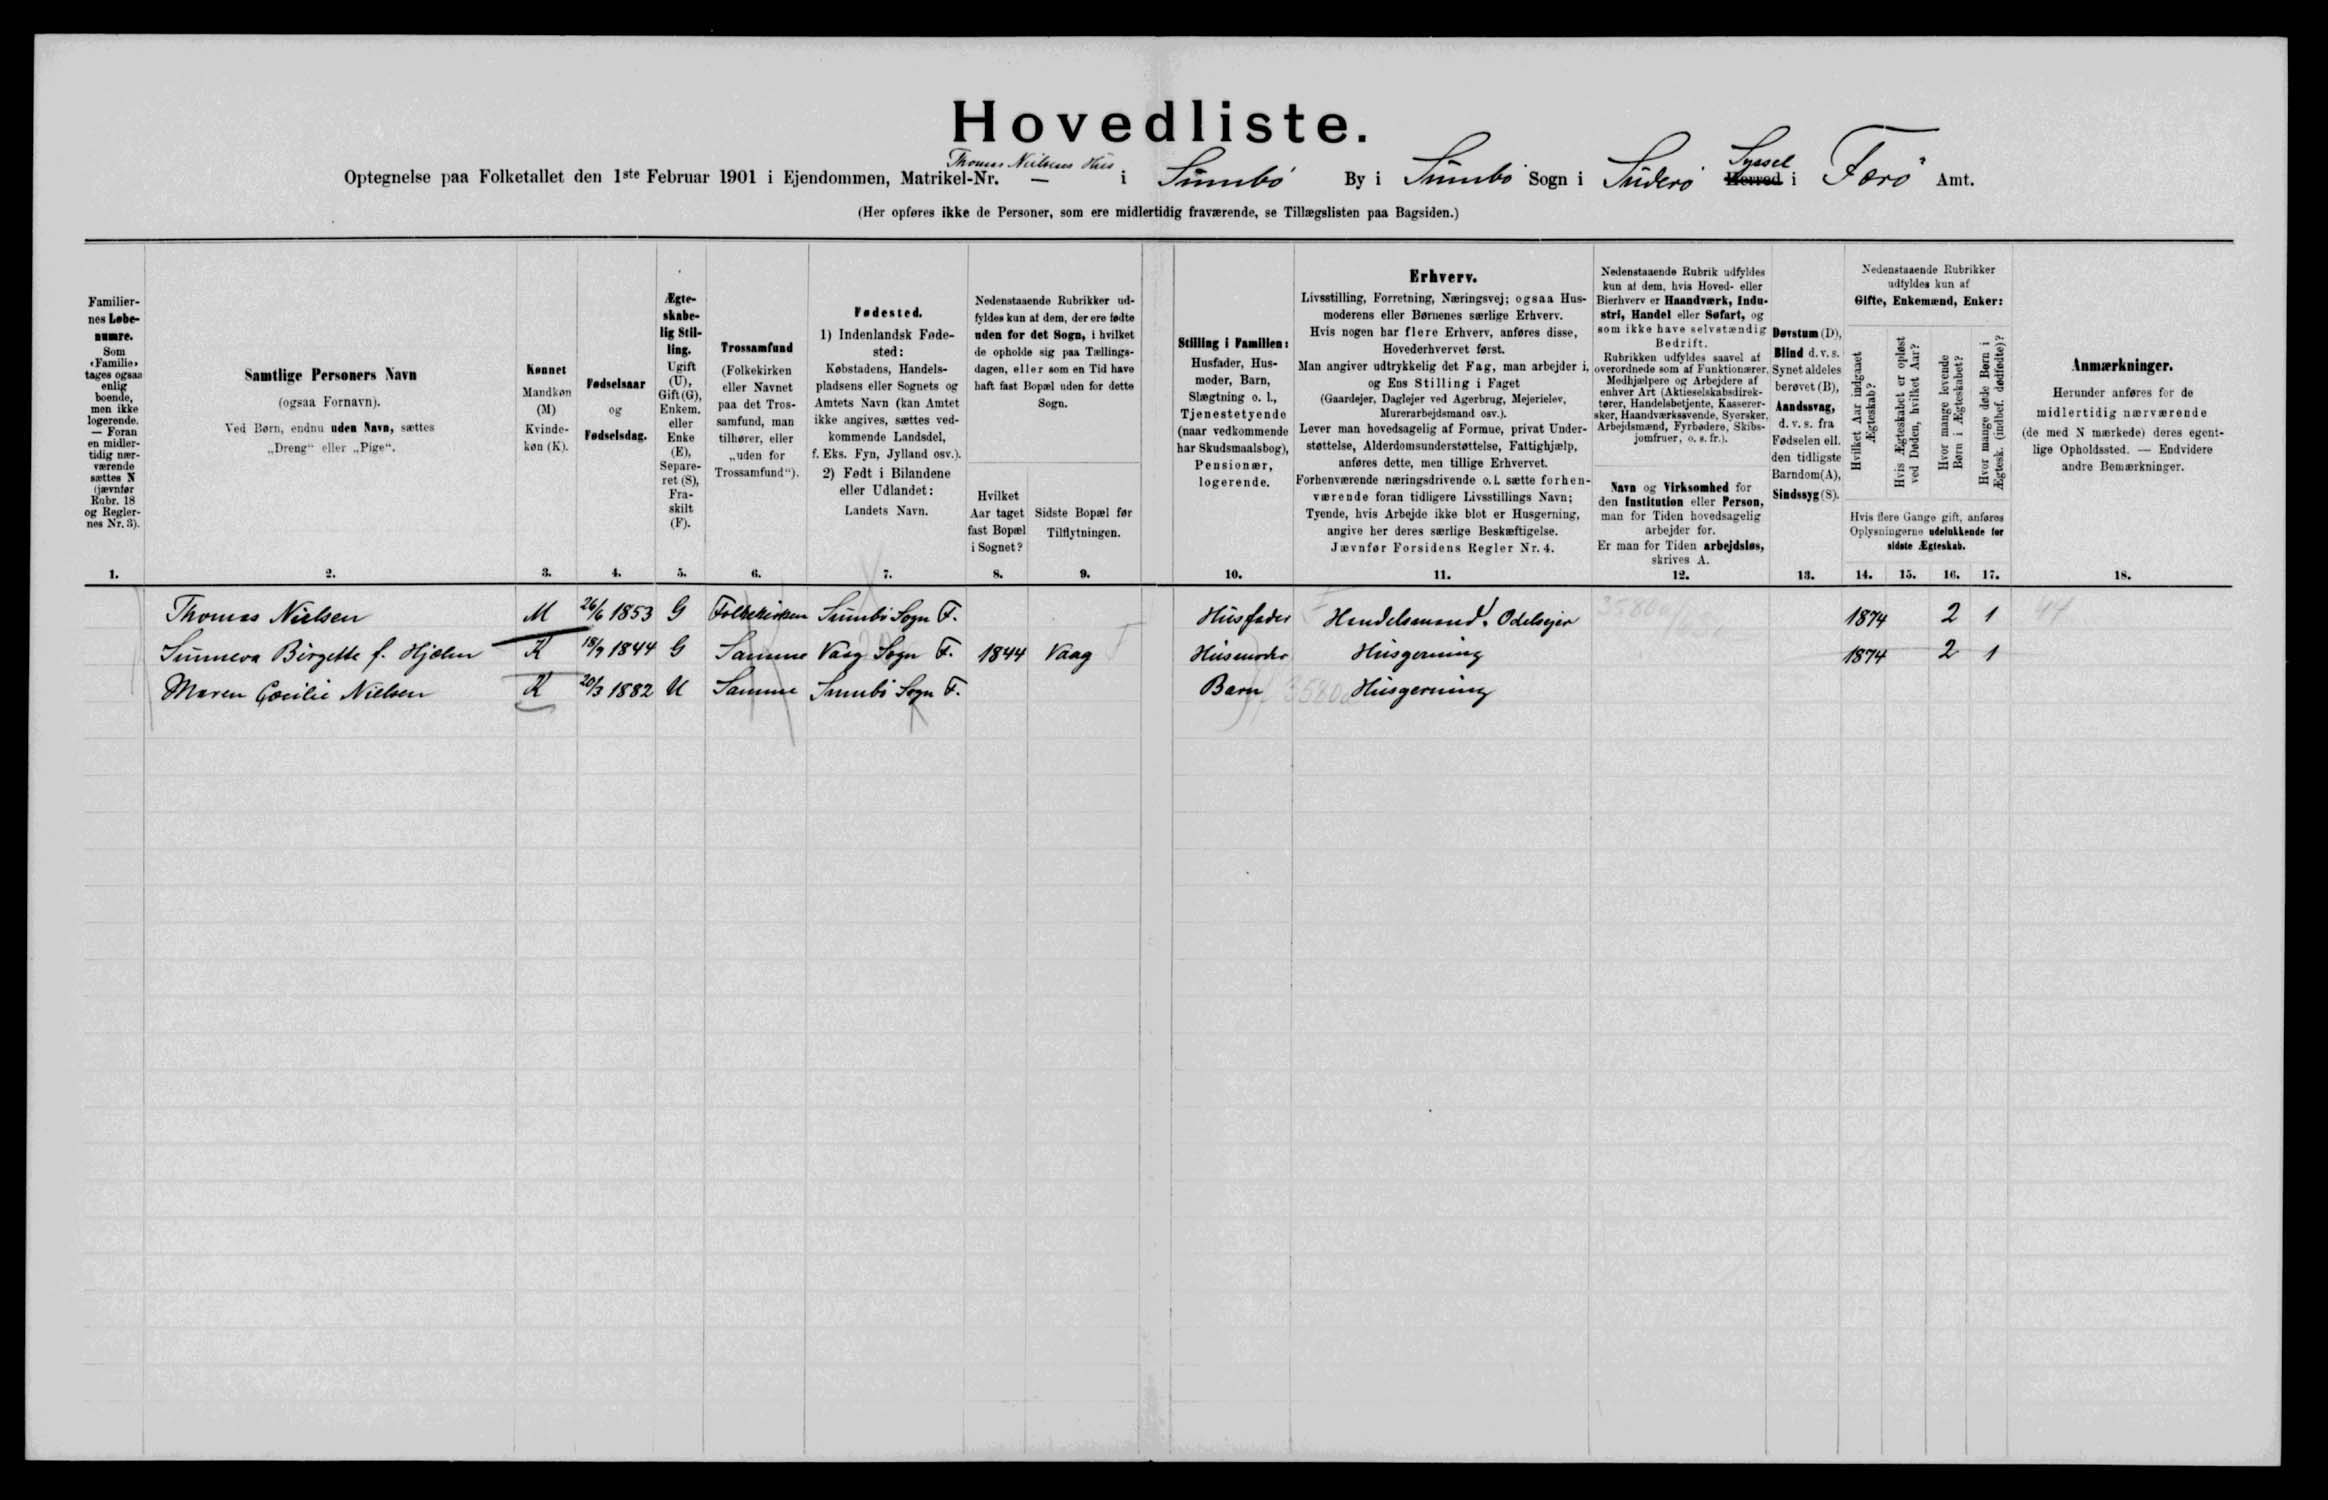 Hovedliste.
Thomas Nielsens Hus
Optegnelse paa Folketallet den 1ste Februar 1901 i Ejendommen, Matrikel-Nr. — i Sumbö By i Sumbö Sogn i Suderö Syssel Herred i Færö Amt.
(Her opføres ikke de Personer, som ere midlertidig fraværende, se Tillægslisten paa Bagsiden.)
Familier-
nes Løbe-
numre.
Som
«Familie»
tages ogsaa
enlig
boende,
men ikke
logerende.
— Foran
en midler-
tidig nær-
værende
sættes N
(jævnfør
Rubr. 18
og Regler-
nes Nr. 3).
1.
Samtlige Personers Navn
(ogsaa Fornavn).
Ved Børn, endnu uden Navn, sættes
„Dreng“ eller „Pige“.
2.
Kønnet
Mandkøn
(M)
Kvinde-
køn (K).
3.
Fødselsaar
og
Fødselsdag.
4.
Ægte-
skabe-
lig Stil-
ling.
Ugift
(U),
Gift (G),
Enkem.
eller
Enke
(E),
Separe-
ret (S),
Fra-
skilt
(F).
5.
Trossamfund
(Folkekirken
eller Navnet
paa det Tros-
samfund, man
tilhører, eller
„uden for
Trossamfund“).
6.
Fødested.
1) Indenlandsk Føde-
sted:
Købstadens, Handels-
pladsens eller Sognets og
Amtets Navn (kan Amtet
ikke angives, sættes ved-
kommende Landsdel,
f. Eks. Fyn, Jylland osv.).
2) Født i Bilandene
eller Udlandet:
Landets Navn.
7.
Nedenstaaende Rubrikker ud-
fyldes kun af dem, der ere fødte
uden for det Sogn, i hvilket
de opholde sig paa Tællings-
dagen, eller som en Tid have
haft fast Bopæl uden for dette
Sogn.
Hvilket
Aar taget
fast Bopæl
i Sognet?
8.
Sidste Bopæl før
Tilflytningen.
9.
Stilling i Familien:
Husfader, Hus-
moder, Barn,
Slægtning o. l.,
Tjenestetyende
(naar vedkommende
har Skudsmaalsbog),
Pensionær,
logerende.
10.
Erhverv.
Livsstilling, Forretning, Næringsvej; ogsaa Hus-
moderens eller Børnenes særlige Erhverv.
Hvis nogen har flere Erhverv, anføres disse,
Hovederhvervet først.
Man angiver udtrykkelig det Fag, man arbejder i,
og Ens Stilling i Faget
(Gaardejer, Daglejer ved Agerbrug, Mejerielev,
Murerarbejdsmand osv.).
Lever man hovedsagelig af Formue, privat Under-
støttelse, Alderdomsunderstøttelse, Fattighjælp,
anføres dette, men tillige Erhvervet.
Forhenværende næringsdrivende o. l. sætte forhen-
værende foran tidligere Livsstillings Navn;
Tyende, hvis Arbejde ikke blot er Husgerning,
angive her deres særlige Beskæftigelse.
Jævnfør Forsidens Regler Nr. 4.
11.
Nedenstaaende Rubrik udfyldes
kun af dem, hvis Hoved- eller
Bierhverv er Haandværk, Indu-
stri, Handel eller Søfart, og
som ikke have selvstændig
Bedrift.
Rubrikken udfyldes saavel af
overordnede som af Funktionærer,
Medhjælpere og Arbejdere af
enhver Art (Aktieselskabsdirek-
tører, Handelsbetjente, Kasserer-
sker, Haandværkssvende, Syersker,
Arbejdsmænd, Fyrbødere, Skibs-
jomfruer, o. s. fr.).
Navn og Virksomhed for
den Institution eller Person,
man for Tiden hovedsagelig
arbejder for.
Er man for Tiden arbejdsløs,
skrives A.
12.
Døvstum (D),
Blind d. v. s.
Synet aldeles
berøvet (B),
Aandssvag,
d. v. s. fra
Fødselen ell.
den tidligste
Barndom (A),
Sindssyg (S).
13.
Nedenstaaende Rubrikker
udfyldes kun af
Gifte, Enkemænd, Enker:
Hvilket Aar indgaaet
Ægteskab?
Hvis Ægteskabet er opløst
ved Døden, hvilket Aar?
Hvor mange levende
Børn i Ægteskabet?
Hvor mange døde Børn i
Ægtesk. (indbef. dødfødte)?
Hvis flere Gange gift, anføres
Oplysningerne udelukkende for
sidste Ægteskab.
14. 15. 16. 17.
Anmærkninger.
Herunder anføres for de
midlertidig nærværende
(de med N mærkede) deres egent-
lige Opholdssted. — Endvidere
andre Bemærkninger.
18.
Thomas Nielsen M 26/6 1853 G Folkekirken Sumbö Sogn F. Husfader Handelsmand. Odelsejer 1874 2 1
Sunneva Birgette f. Hjælm K 18/9 1844 G Samme Vaag Sogn F. 1844 Vaag Husmoder Husgerning 1874 2 1
Maren Cæcilie Nielsen K 20/3 1882 U Samme Sumbö Sogn F. Barn Husgerning